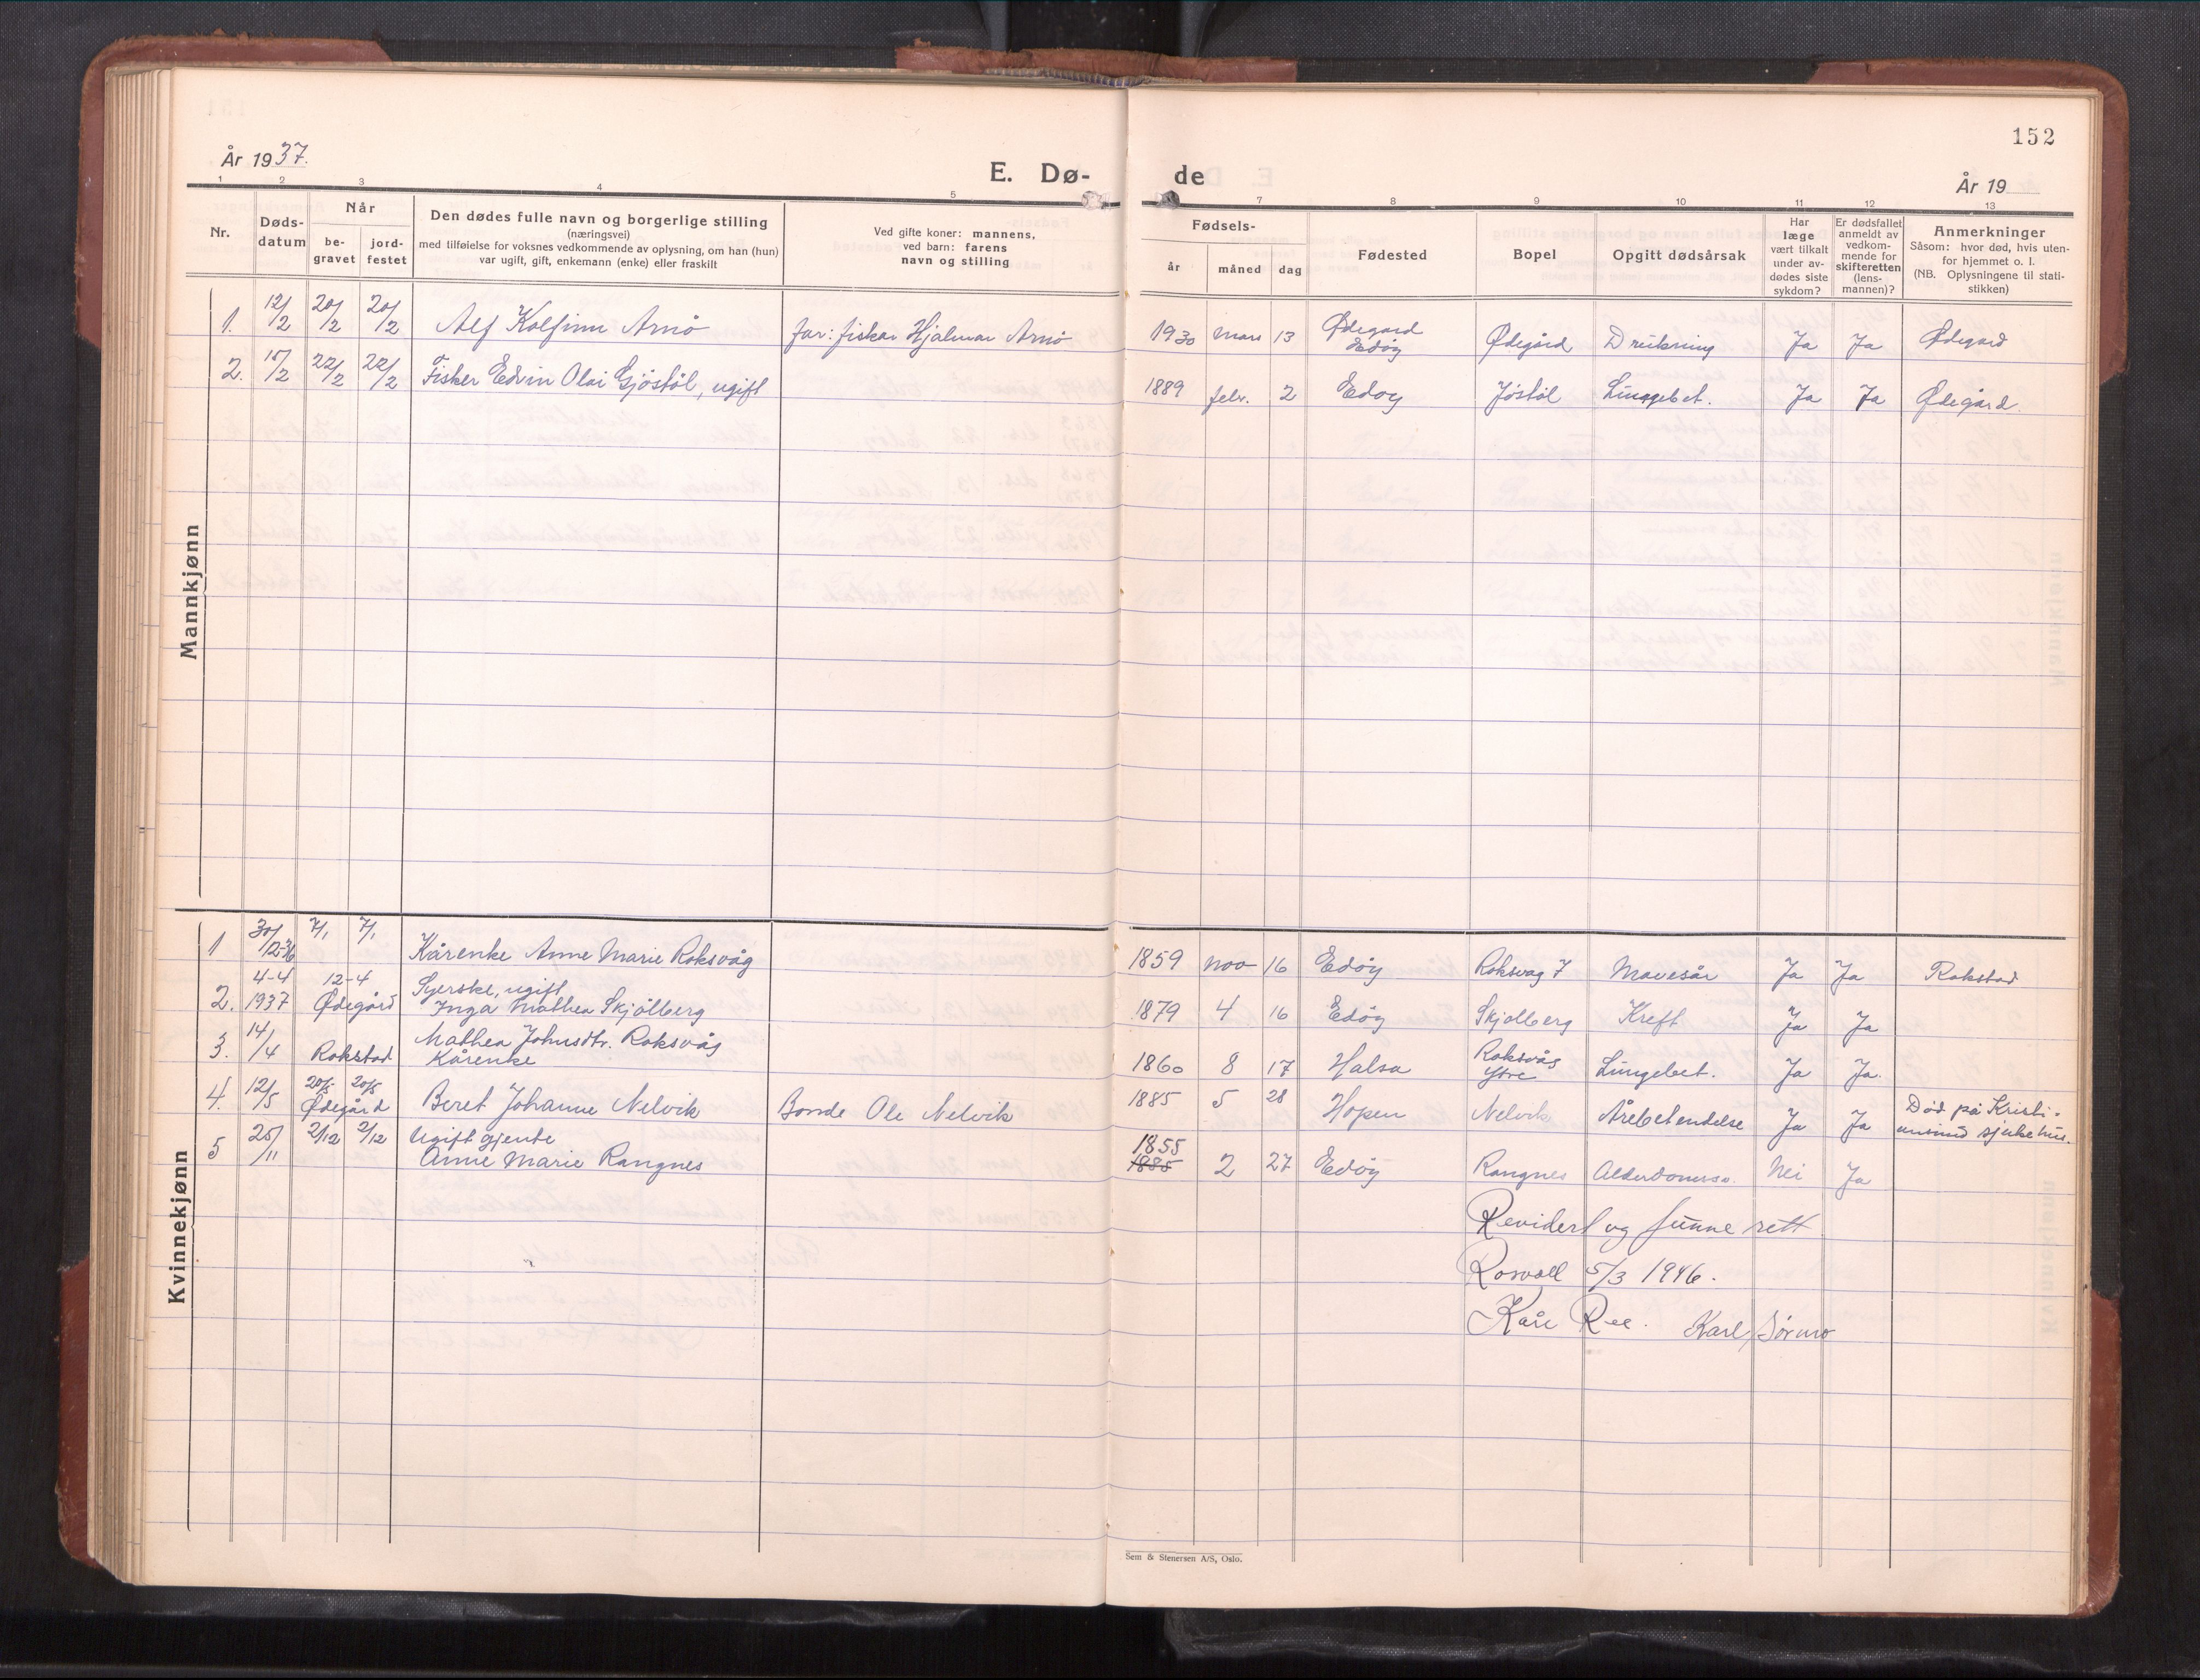 152
År 1937.
E. Dø-
de
År 19
1 2 3 4 5 7 8 9 10 11 12 13
Nr.
Døds-
datum
Når
be-
gravet
jord-
festet
Den dødes fulle navn og borgerlige stilling
(næringsvei)
med tilføielse for voksnes vedkommende av oplysning, om han (hun)
var ugift, gift, enkemann (enke) eller fraskilt
Ved gifte koner: mannens,
ved barn: farens
navn og stilling
Fødsels-
år måned dag
Fødested
Bopel
Opgitt dødsårsak
Har
læge
vært tilkalt
under av-
dødes siste
sykdom?
Er dødsfallet
anmeldt av
vedkom-
mende for
skifteretten
(lens-
mannen)?
Anmerkninger
Såsom: hvor død, hvis uten-
for hjemmet o. l.
(NB. Oplysningene til stati-
stikken)
Mannkjønn
1. 12/2 20/2 20/2 Alf Kolfinn Arnö far: fisker Hjalmar Arnö 1930 mars 13 Ødegard Edöy Ødegård Drukning Ja Ja Ødegård
2. 15/2 22/2 22/2 Fisker Edvin Olai Gjöstöl, ugift 1889 febr. 2 Edoy Jöstöl Lungebet. Ja Ja Ødegård.
Kvinnekjønn
1 30/12-36 7/1 7/1 Kårenke Anne Marie Roksvåg 1859 nov 16 Edöy Roksvag 7 Mavesår Ja Ja Rokstad
2. 4-4 1937 12-4 Ødegård Syerske, ugift
Inga Mathea Skjölberg 1879 4 16 Edöy Skjolberg Kreft Ja Ja
3. 14/4 Rokstad Mathea Johnsdtr. Roksvåg
Kårenke 1860 8 17 Halsa Roksvåg Ytre Lungebet. Ja Ja.
4. 12/5 20/5 20/5 Ødegård Beret Johanne Nelvik Bonde Ole Nelvik 1885 5 28 Hopen Nelvik Årebetendelse Ja Ja Död på Kristi-
ansund sjukehus.
5 25/11 2/12 2/12 Ugift gjente
Anne Marie Rangnes 1855 1885 2 27 Edöy Rangnes Alderdomssv. Nei Ja
Revidert og funne rett
Rosvoll 5/3 1946.
Kåre Ree. Karl Sörmo
Sem & Stenersen A/S, Oslo.